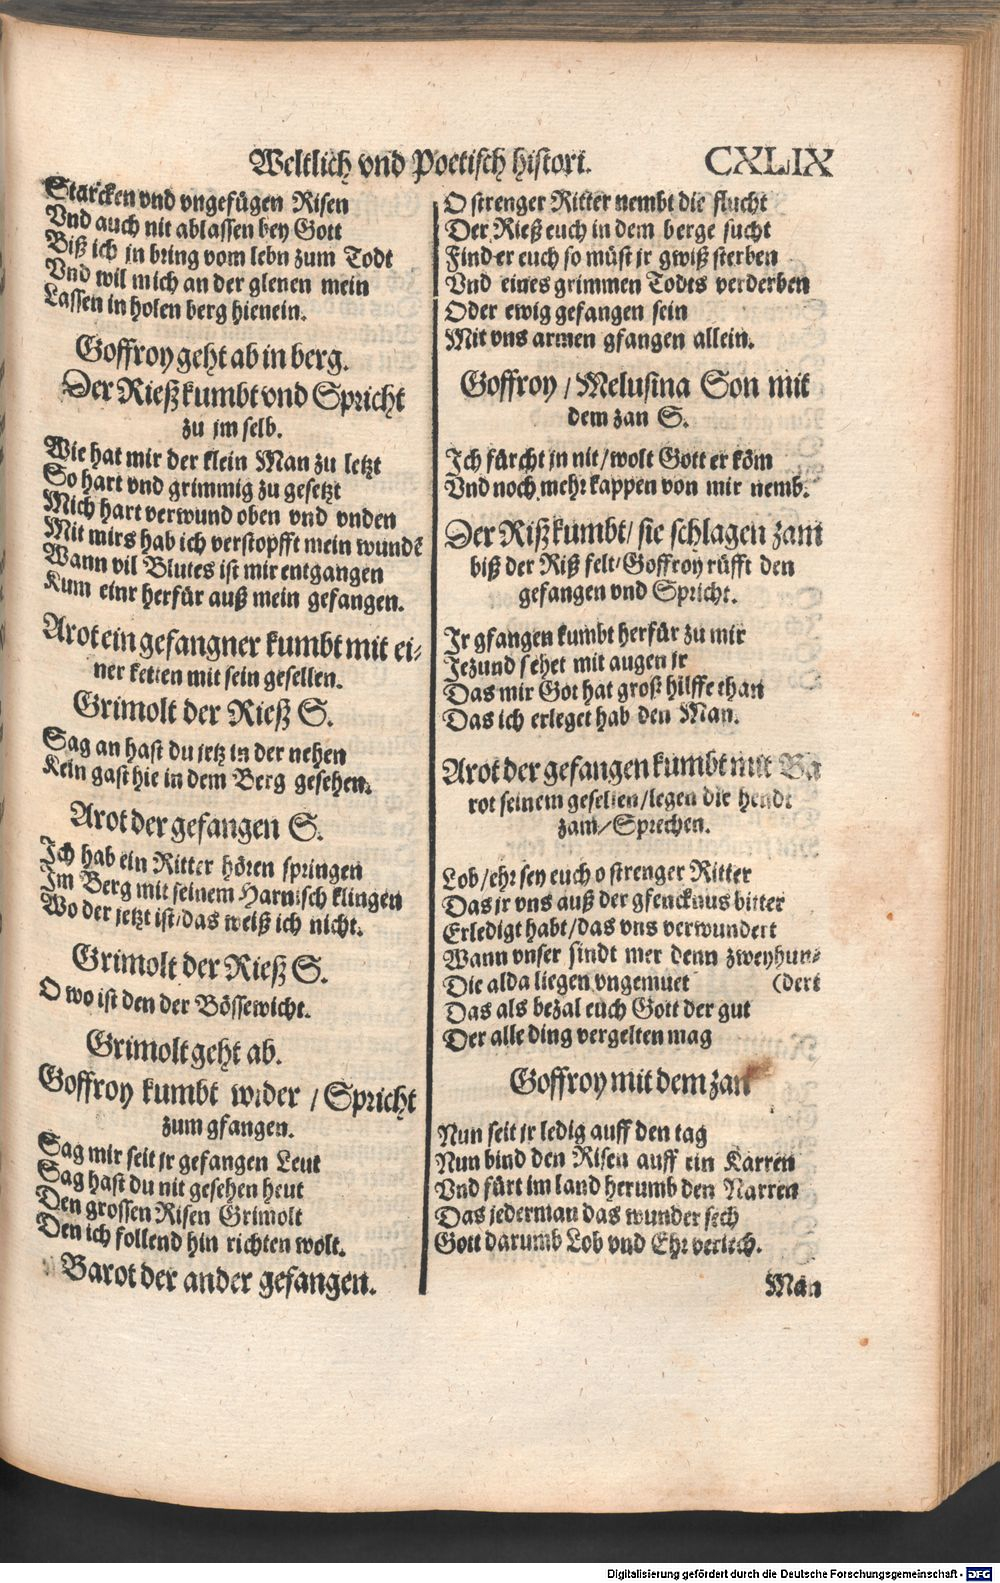 Weltlich vnd Poetisch histori. CXLIX
Starcken vnd vngefügen Risen
Vnd auch nit ablassen bey Gott
Biß ich jn bring vom lebn zum Todt
Vnd wil mich an der glenen mein
Lassen in holen berg hienein.
Goffroy geht ab in berg.
Der Rieß kumbt vnd Spricht
zu jm selb.
Wie hat mir der klein Man zu letzt
So hart vnd grimmig zu gesetzt
Mich hart verwund oben vnd vnden
Mit mirs hab ich verstopfft mein wundē
Wann vil Blutes ist mir entgangen
Kum einr herfür auß mein gefangen.
Arot ein gefangner kumbt mit ei-
ner ketten mit sein gesellen.
Grimolt der Rieß S.
Sag an hast du jetz in der nehen
Kein gast hie in dem Berg gesehen.
Arot der gefangen S.
Ich hab ein Ritter hören springen
Im Berg mit seinem Harnisch klingen
Wo der jetzt ist/das weiß ich nicht.
Grimolt der Rieß S.
O wo ist den der Bössewicht.
Grimolt geht ab.
Goffroy kumbt wider / Spricht
zum gfangen.
Sag mir seit jr gefangen Leut
Sag hast du nit gesehen heut
Den grossen Risen Grimolt
Den ich follend hin richten wolt.
Barot der ander gefangen.
O strenger Ritter nembt die flucht
Der Rieß euch in dem berge sucht
Find er euch so müst jr gwiß sterben
Vnd eines grimmen Todts verderben
Oder ewig gefangen sein
Mit vns armen gfangen allein.
Goffroy / Melusina Son mit
dem zan S.
Ich fürcht jn nit/wolt Gott er köm
Vnd noch mehr kappen von mir nemb.
Der Riß kumbt/ sie schlagen zam
biß der Riß felt/Goffroy rüfft den
gefangen vnd Spricht.
Ir gfangen kumbt herfür zu mir
Jezund sehet mit augen jr
Das mir Got hat groß hilffe than
Das ich erleget hab den Man.
Arot der gefangen kumbt mit Ba
rot seinem gesellen/legen die hendt
zam/Sprechen.
Lob/ehr sey euch o strenger Ritter
Das jr vns auß der gfencknus bitter
Erledigt habt/das vns verwundert
Wann vnser sindt mer denn zweyhun-
Die alda liegen vngemuet (dert
Das als bezal euch Gott der gut
Der alle ding vergelten mag
Goffroy mit dem zan
Nun seit jr ledig auff den tag
Nun bind den Risen auff ein Karren
Vnd fürt im land herumb den Narren
Das jederman das wunder sech
Gott darumb Lob vnd Ehr veriech.
Man
Digitalisierung gefördert durch die Deutsche Forschungsgemeinschaft - DFG